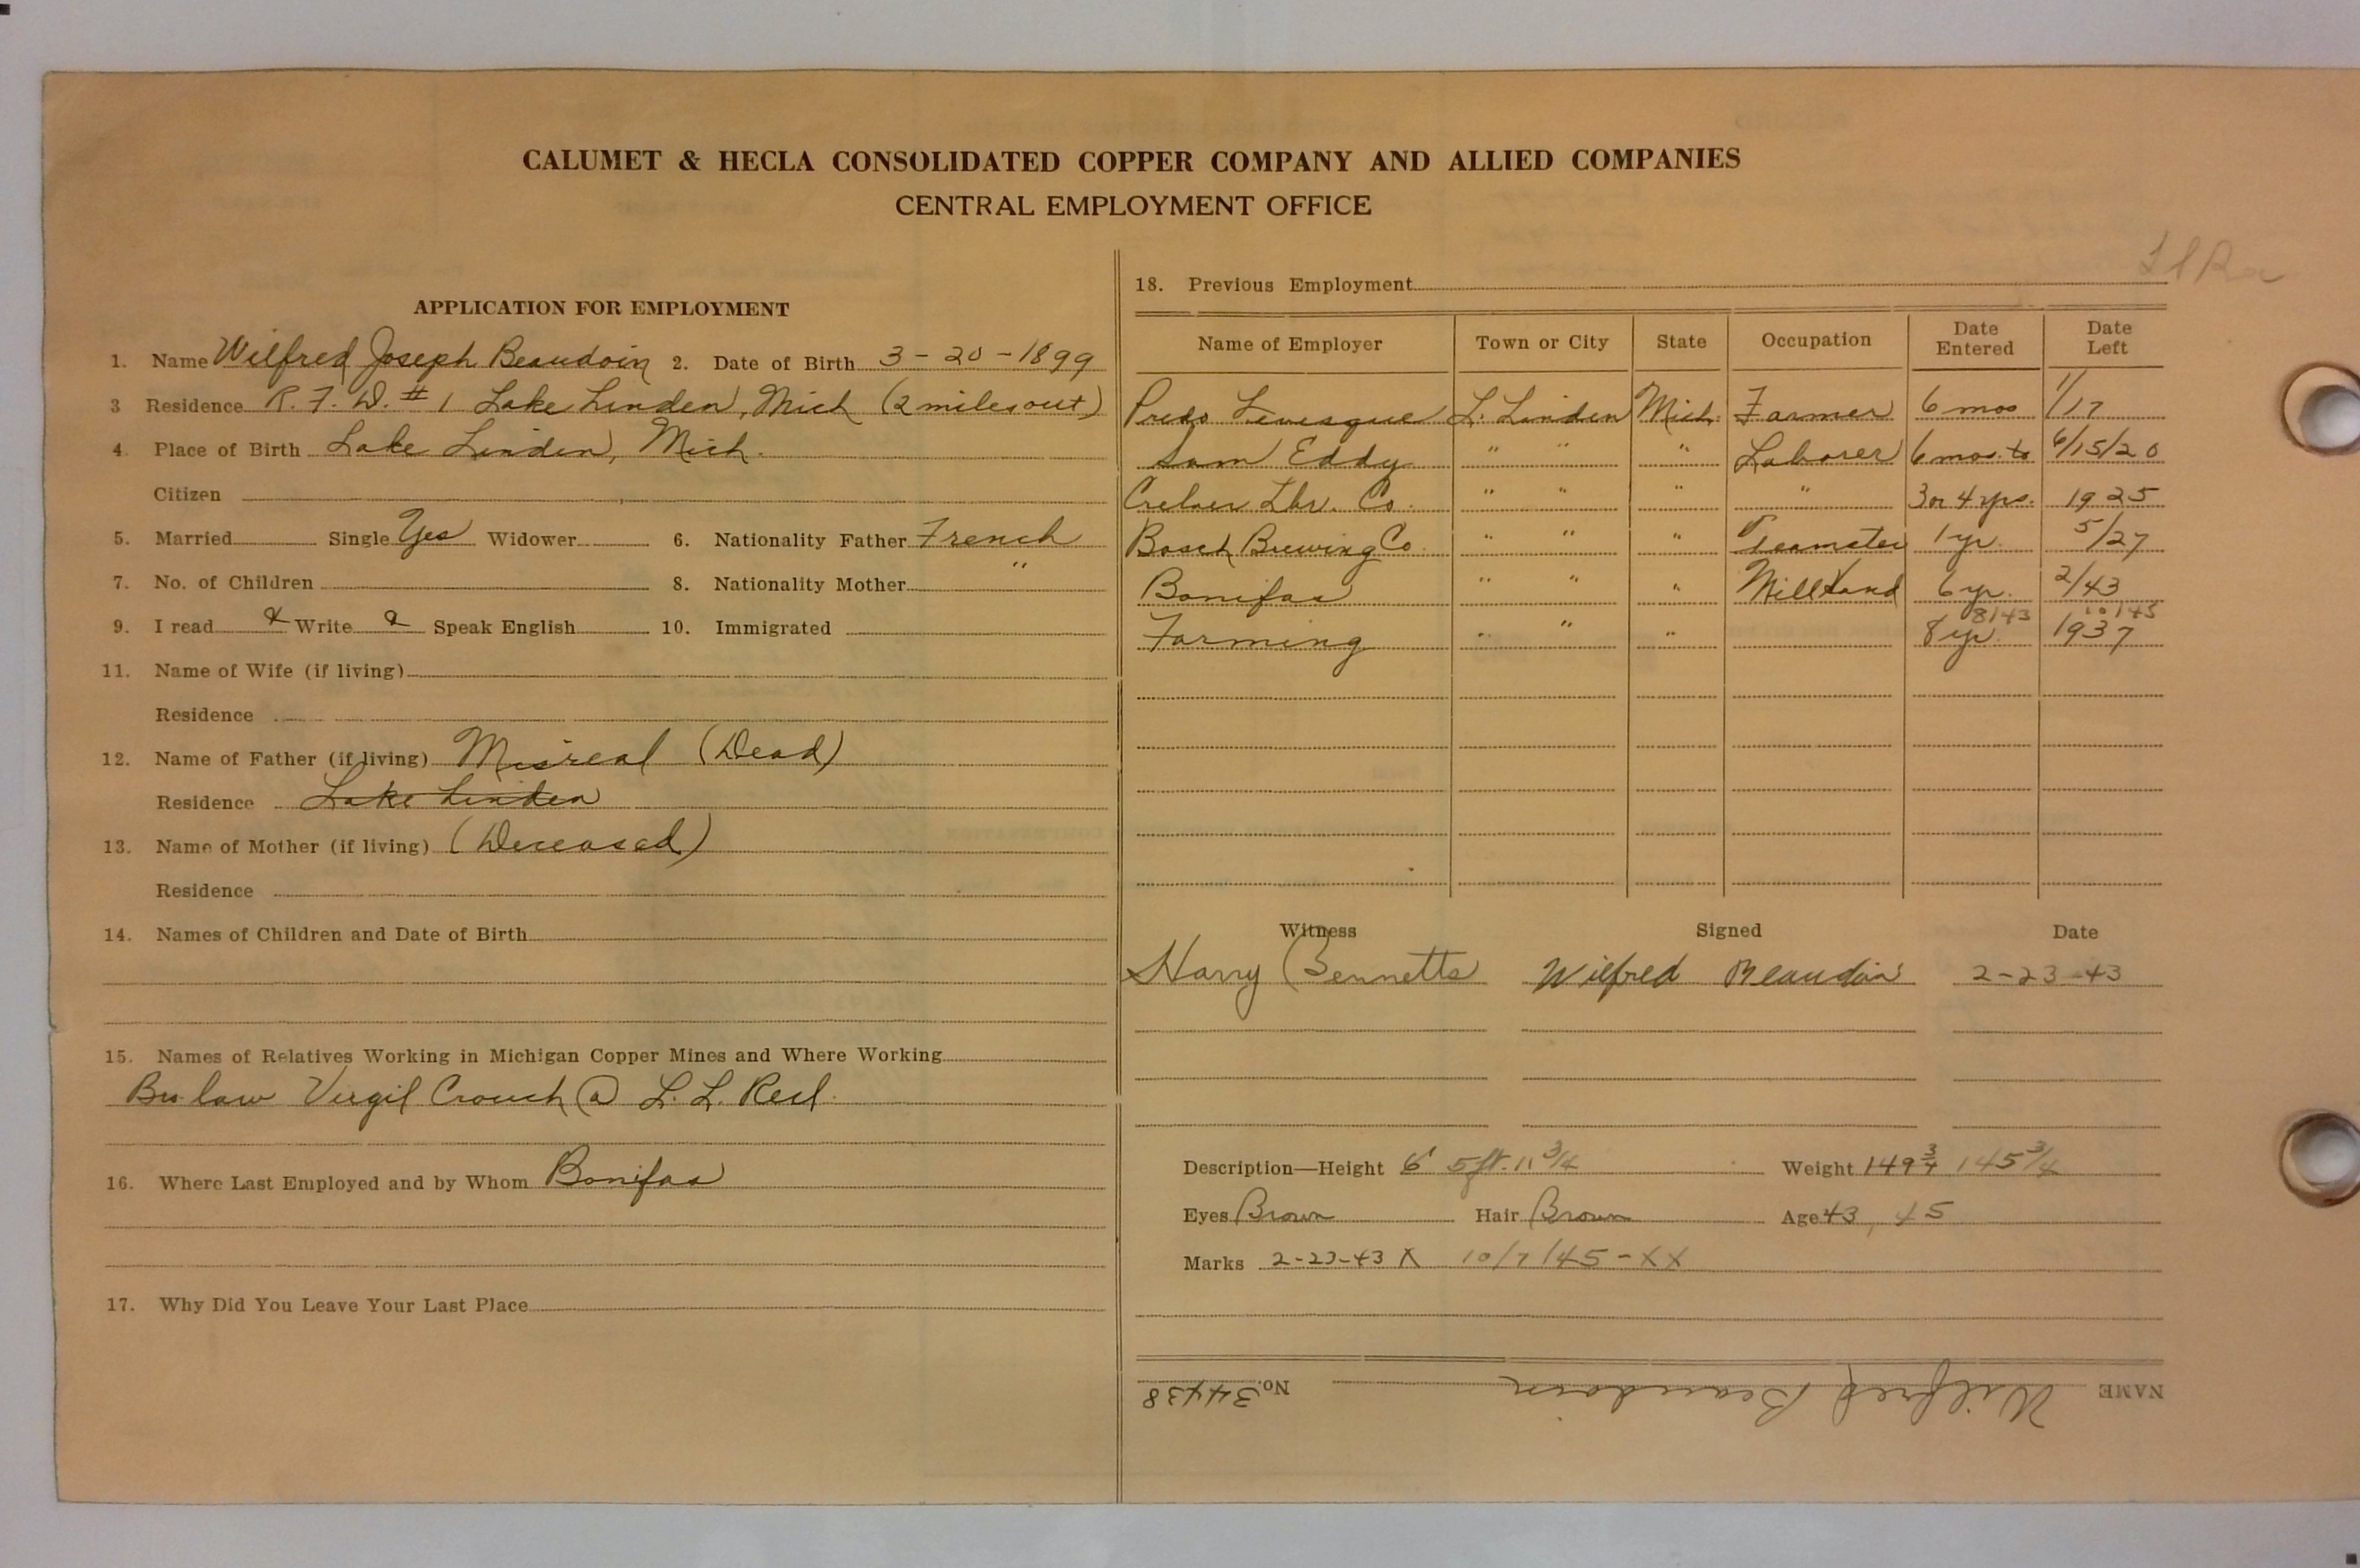 CALUMET & HECLA CONSOLIDATED COPPER COMPANY AND ALLIED COMPANIES
CENTRAL EMPLOYMENT OFFICE
APPLICATION FOR EMPLOYMENT
1. Name Wilfred Joseph Beaudoin 2. Date of Birth 3-20-1899
3 Residence R.F.D. # 1 Lake Linden, Mich (2 miles out)
4. Place of Birth Lake Linden, Mich.
Citizen
5. Married Single Yes Widower 6. Nationality Father French
7. No. of Children 8. Nationality Mother "
9. I read & Write & Speak English 10. Immigrated
11. Name of Wife (if living)
Residence
12. Name of Father (if living) (Dead)
Residence Lake Linden
13. Name of Mother (if living) (Deceased)
Residence
14. Names of Children and Date of Birth
15. Names of Relatives Working in Michigan Copper Mines and Where Working
Bro law Virgil Crouch @ L. L. Recl.
16. Where Last Employed and by Whom Bonifas
17. Why Did You Leave Your Last Place
18. Previous Employment
Name of Employer Town or City State Occupation Date Entered Date Left
Levesque L. Linden Mich. Farmer 6 mos 1/17
Sam Eddy " " " Laborer 6 mos. to 6/15/20
Lbr. Co. " " " " 3 or 4 yrs. 1925
Bosch Brewing Co " " " Teamster 1 yr. 5/27
Bonifas " " " Mill Hand 6 yr. 2/43
8/43 10/45
Farming " " " 8 yr. 1937
Witness Signed Date
Harry Bennetts Wilfred Beaudoin 2-23-43
Description—Height 6' 5 ft. 11 3/4 Weight 149 3/4 145 3/4
Eyes Brown Hair Brown Age 43, 45
Marks 2-23-43 X 10/7/45-XX
NAME Wilfred Beaudoin No. 34438